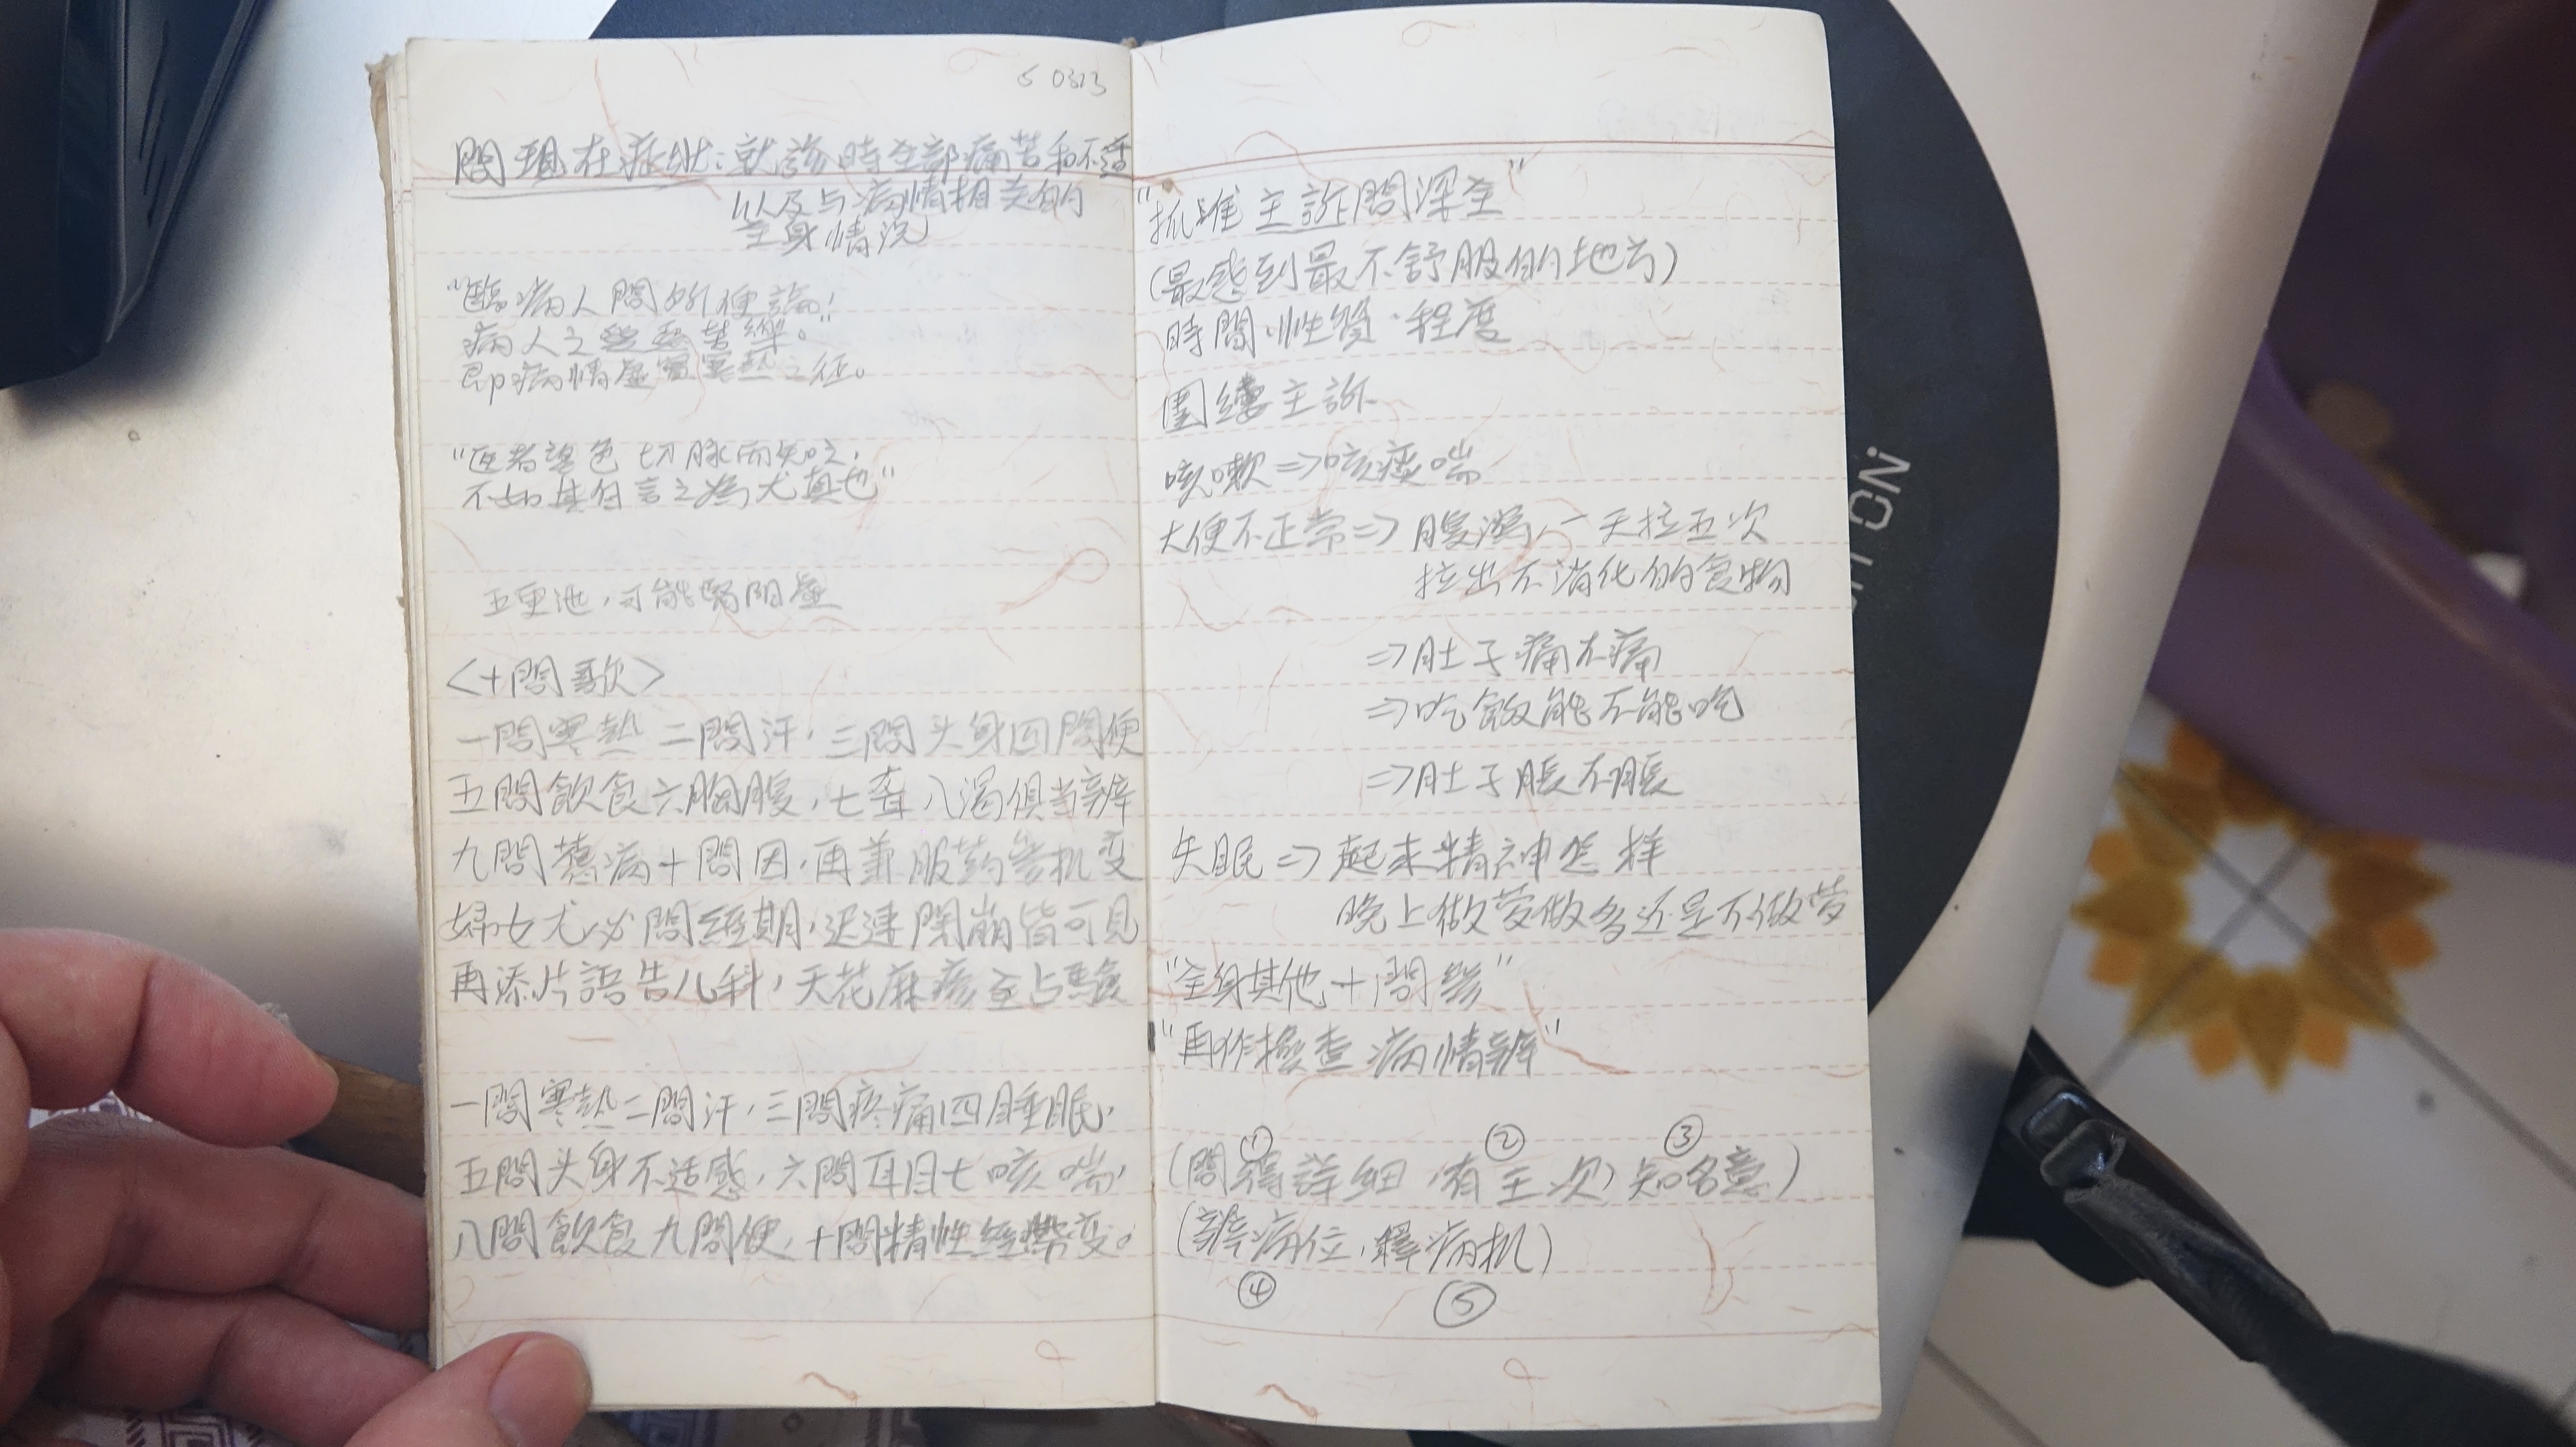 5 0313
問現在症狀:就診時全部痛苦和不適
以及与病情相关的
全身情況
"臨病人問所便論!
病人之 苦樂。"
即病情虛實寒熱之征。
"医者望色切脉而知之,
不如其自言之為尤真也"
五更泄,可能腎陽虛
<十問歌>
一問寒熱二問汗,三問头身四問便
五問飲食六胸腹,七聋八渴俱当辨
九問舊病十問因,再兼服药参机变
婦女尤必問經期,迟速閉崩皆可見
再添片語告儿科,天花麻疹全占驗
一問寒熱二問汗,三問疼痛四睡眠,
五問头身不适感,六問耳目七咳喘,
八問飲食九問便,十問精性經帶变。
"抓准主訴問深全"
(最感到最不舒服的地方)
時間·性質·程度
圍繞主訴
咳嗽⇒咳痰喘
大便不正常⇒腹瀉,一天拉五次
拉出不消化的食物
⇒肚子痛不痛
⇒吃飯能不能吃
⇒肚子脹不脹
失眠⇒起來精神怎样
晚上做梦做多还是不做梦
"全身其他十問參"
"再作檢查病情辨"
① ② ③
(問得詳細,有主次,知名意)
(辨病位,釋病机)
④ ⑤
ON